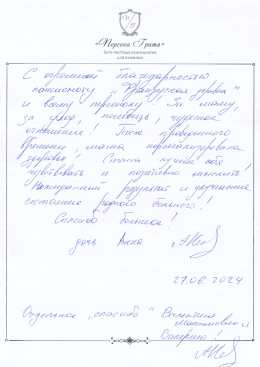 «Первая Грата»
Сеть частных пансионатов
для пожилых
С огромной благодарностью
пансионату "Французская деревня"
и всему персоналу! За маму,
за уход, помощь, чудесное
отношение! После проведенного
времени, мама нормализировала
здоровье! Стала лучше себя
чувствовать и позитивно мыслить!
Неожиданный результат и улучшение
состояния родного больного!
Спасибо большое!
дочь Анна
27.06 2024
Отдельное "спасибо" Валентине
и
Валерию!